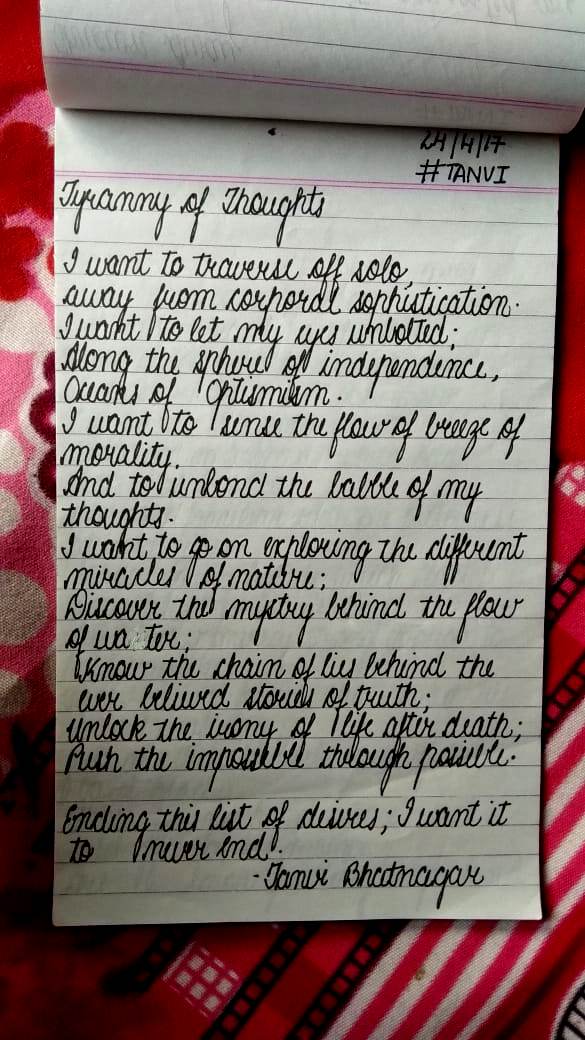 24/4/17
#TANVI
Tyranny of Thoughts
I want to traverse off solo,
away from corporal sophistication.
I want to let my eyes unbolted;
Along the sphere of independence,
Oceans of Optismism.
I want to sense the flow of breeze of
morality.
And to unbond the babble of my
thoughts.
I want to go on exploring the different
miracles of nature;
Discover the mystry behind the flow
of water;
Know the chain of lies behind the
ever belived stories of truth;
Unlock the irony of life after death;
Push the impossible through possible.
Ending this list of desires; I want it
to never end.
-Tanvi Bhatnagar